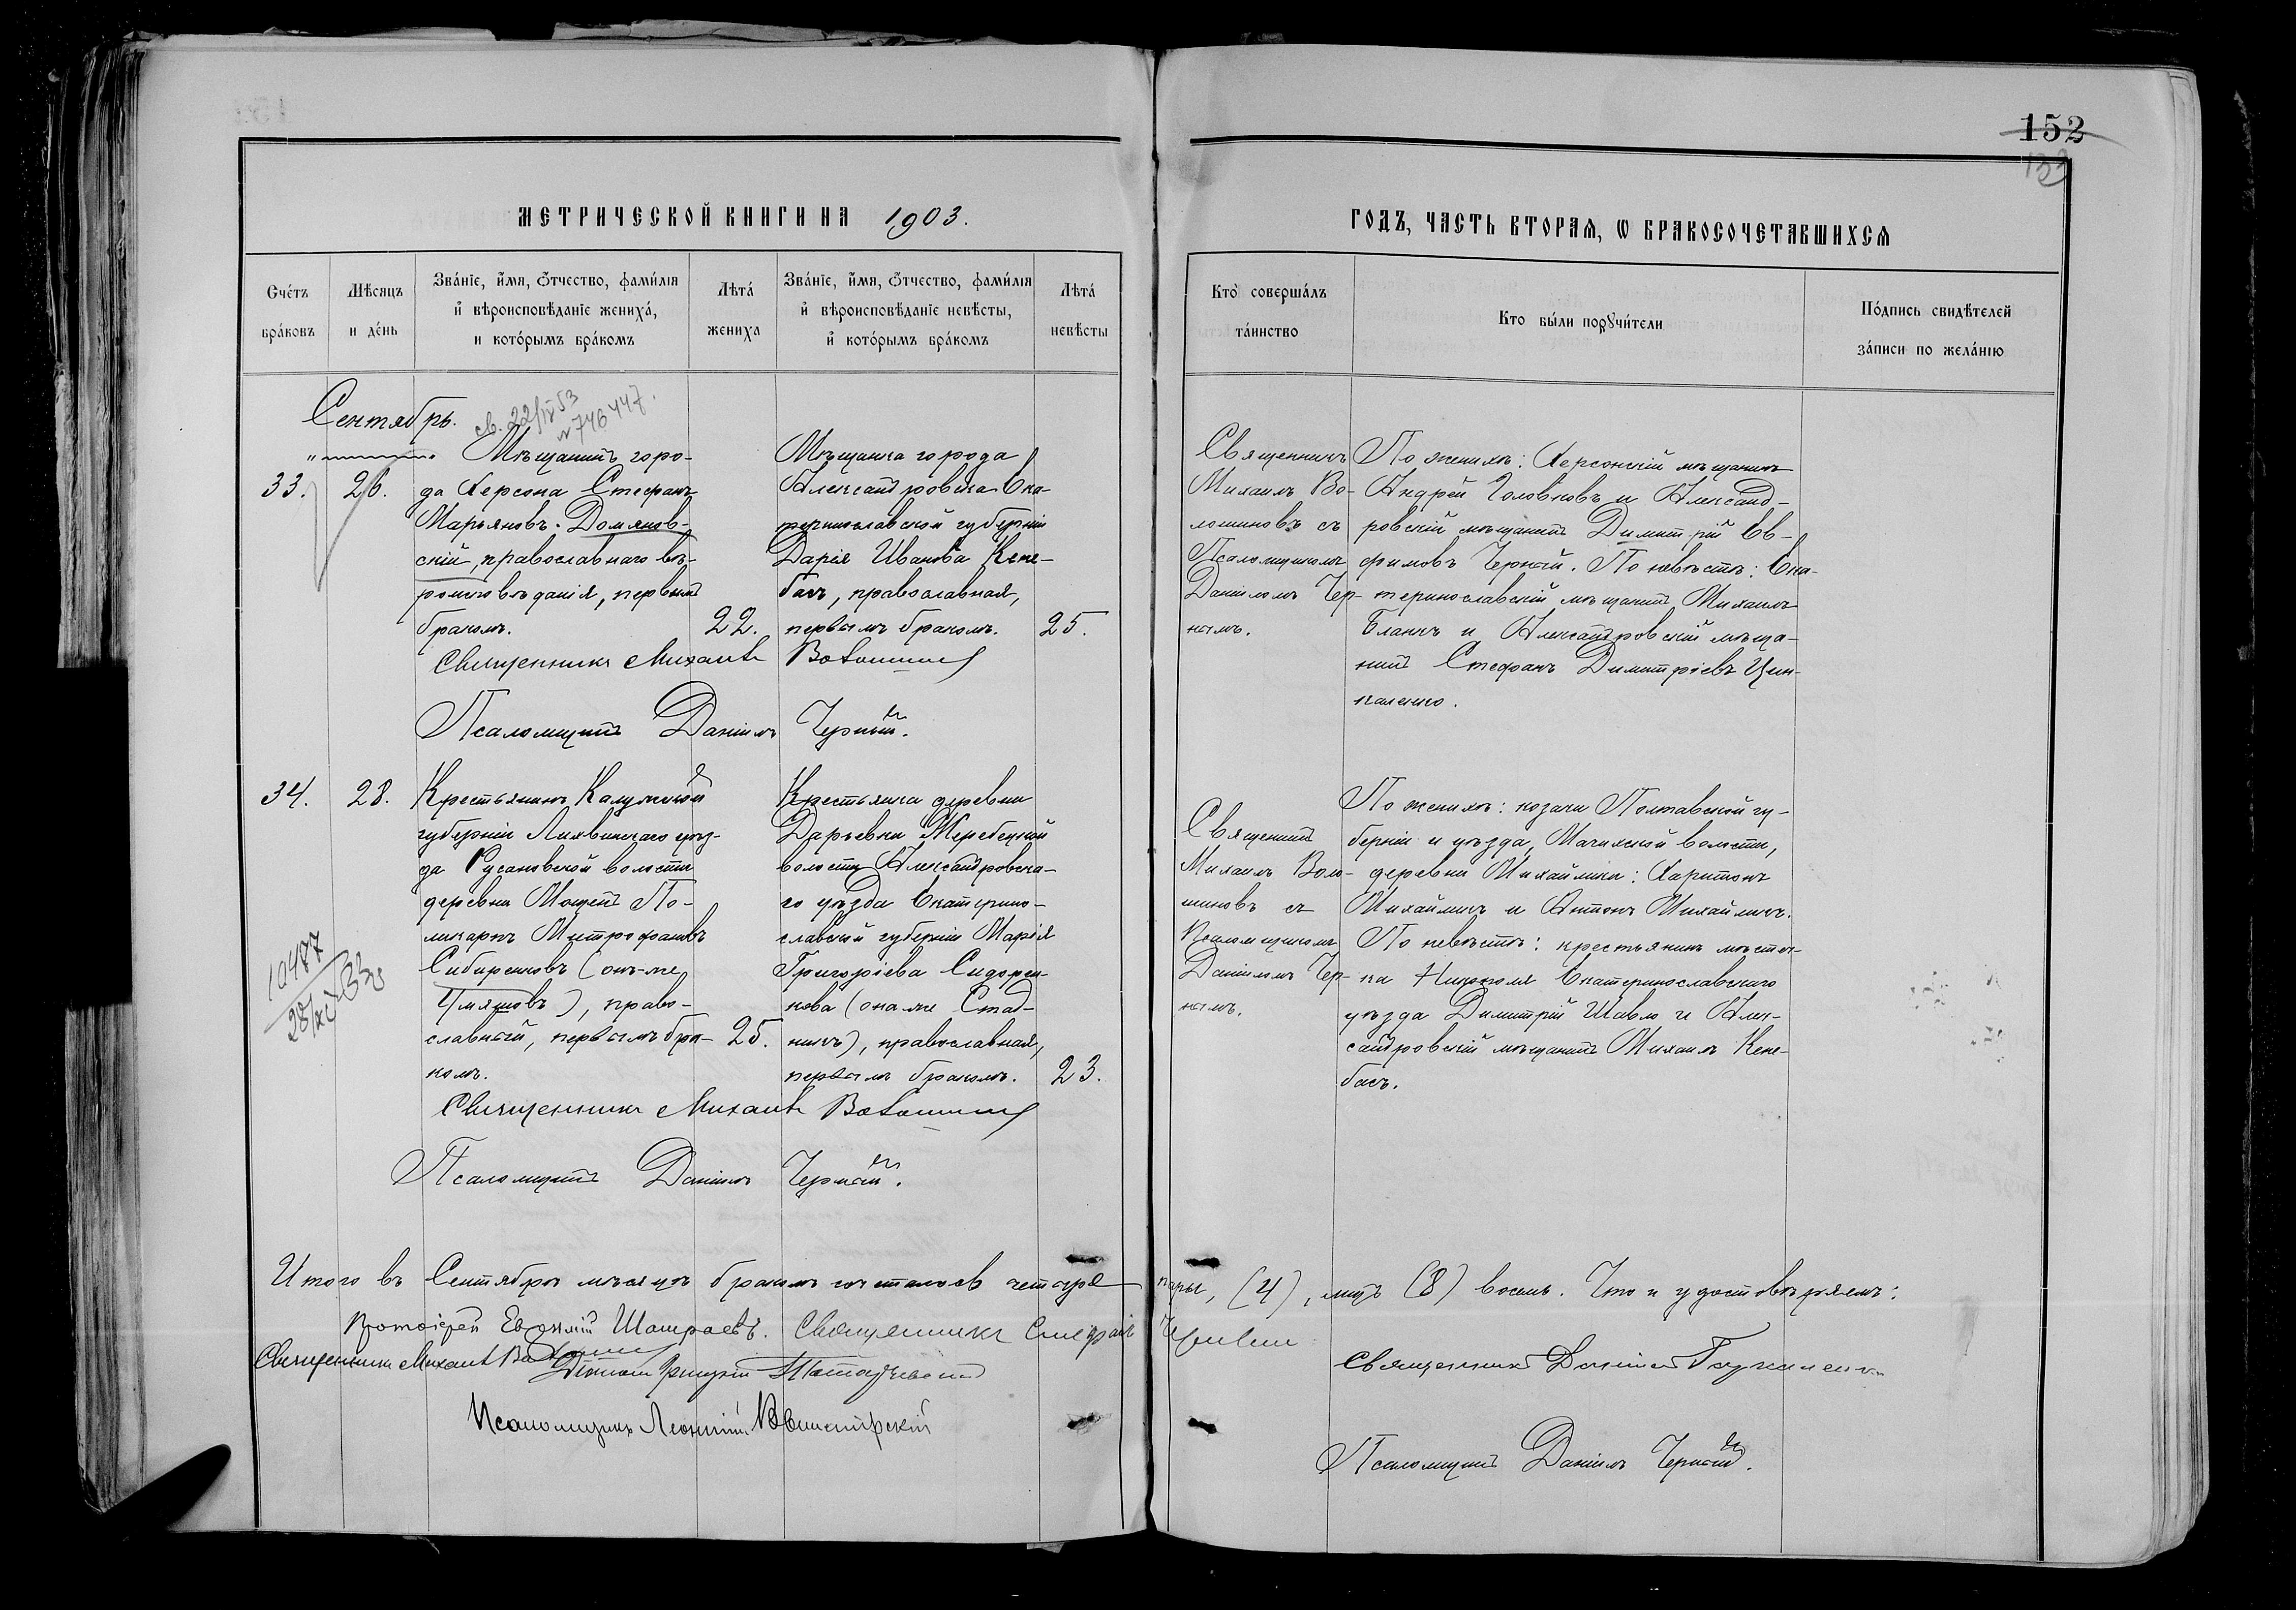 152
133
МЕТРИЧЕСКОЙ КНИГИ НА 1903.
ГОДЪ, ЧАСТЬ ВТОРАЯ, Ѡ БРАКОСОЧЕТАВШИХСЯ
Счетъ браковъ
Мѣсяцъ и день
Званіе, имя, отчество, фамилія
и вѣроисповѣданіе жениха,
и которымъ бракомъ
Лѣта жениха
Званіе, имя, отчество, фамилія
и вѣроисповѣданіе невѣсты,
и которымъ бракомъ
Лѣта невѣсты
Кто совершалъ
таинство
Кто были поручители
Подпись свидѣтелей
записи по желанію
Сентябрь.
св. 22/IV 53
№ 746447.
33.
26.
Мѣщанинъ горо-
да Херсона Стефанъ
Марьяновъ Домянов-
скій, православнаго вѣ-
роисповѣданія, первымъ
бракомъ.
22.
Мѣщанка города
Александровска Ека-
теринославской губерніи
Дарія Иванова Кене-
басъ, православная,
первымъ бракомъ.
25.
Священникъ
Михаилъ Во-
лошиновъ съ
Псаломщикомъ
Даніиломъ Чер-
нымъ.
По женихѣ: Херсонскій мѣщанинъ
Андрей Головковъ и Александ-
ровскій мѣщанинъ Димитрій Ев-
фимовъ Черный. По невѣстѣ: Ека-
теринославскій мѣщанинъ Михаилъ
Бланкъ и Александровскій мѣща-
нинъ Стефанъ Димитріевъ Цим-
каленко.
Священникъ Михаилъ Волошинов
Псаломщикъ Даніилъ Черный.
34.
28.
10477
28/XI 33
Крестьянинъ Калужской
губерніи Лихвинскаго уѣз-
да Русановской волости
деревни Мощенъ По-
ликарпъ Митрофановъ
Сибиряковъ (онъ-же
Умяшовъ), право-
славный, первымъ бра-
комъ.
25.
Крестьянка деревни
Дарьевки Жеребецкой
волости Александровска-
го уѣзда Екатерино-
славской губерніи Марія
Григоріева Сидорен-
кова (она же Стад-
никъ), православная,
первымъ бракомъ.
23.
Священникъ
Михаилъ Воло-
шиновъ съ
Псаломщикомъ
Даніиломъ Чер-
нымъ.
По женихѣ: козаки Полтавской гу-
берніи и уѣзда, Мачихской волости,
деревни Михайлики: Харитонъ
Михайликъ и Антонъ Михайликъ.
По невѣстѣ: крестьянинъ мѣстеч-
ка Никополя Екатеринославскаго
уѣзда Димитрій Шавло и Алек-
сандровскій мѣщанинъ Михаилъ Кене-
басъ.
Священникъ Михаилъ Волошинов
Псаломщикъ Даніилъ Черный.
Итого въ Сентябрѣ мѣсяцѣ бракомъ сочеталось четыре пары, (4), лицъ (8) восемь. Что и удостовѣряемъ:
Протоіерей Евѳимій Шатраевъ. Священникъ Стефанъ
Священникъ Михаилъ Волошинов
Діаконъ
Священникъ Даніилъ
Псаломщикъ Леонтій
Псаломщикъ Даніилъ Черный.